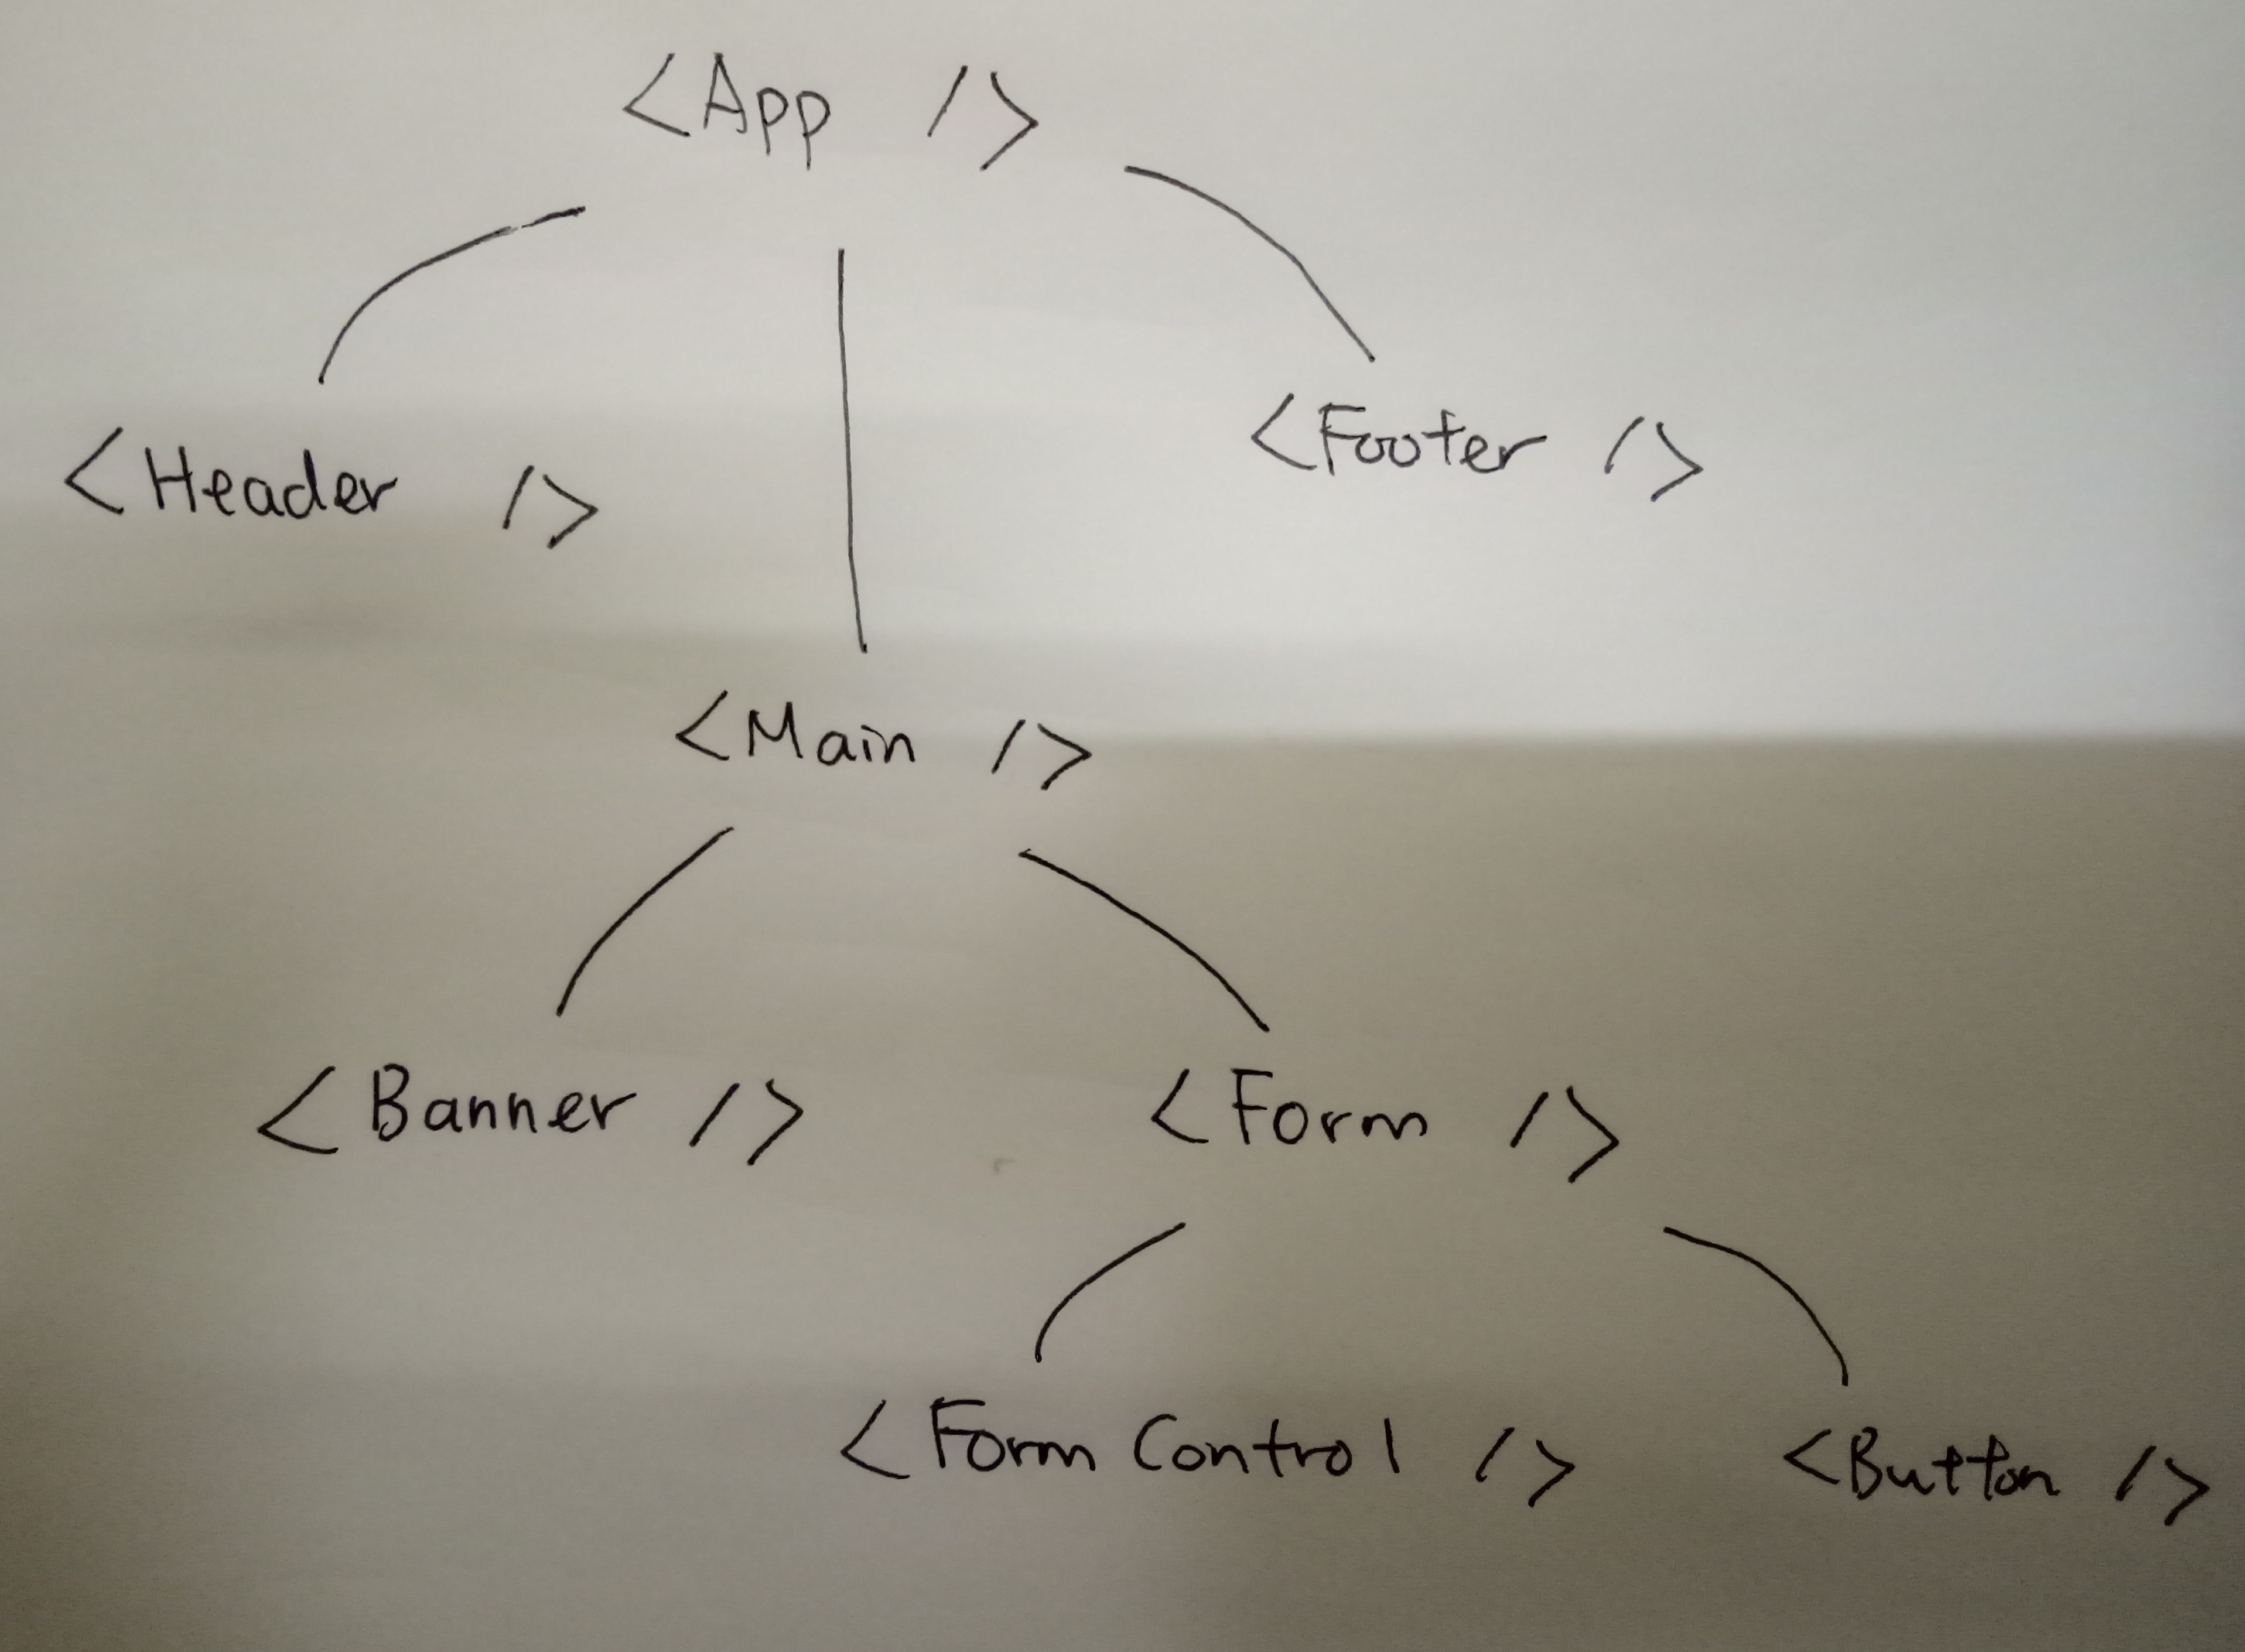 <App />
<Header />
<Footer />
<Main />
<Banner />
<Form />
<Form Control />
<Button />